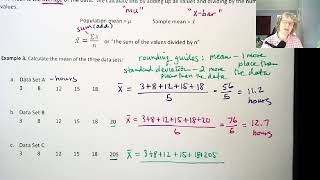 of the data. We calculate this by adding up all values and dividing by the num
values.
"mu"
"x-bar"
Population mean = μ
Sample mean = x̄
sum (add)
x̄ = Σx/n or "the sum of the values divided by n"
rounding guides: mean - 1 more
place than
the data
standard deviation - 2 more
places than the data
Example 3. Calculate the mean of the three data sets:
a. Data Set A - hours
3 8 12 15 18
x̄ = 3+8+12+15+18 / 5 = 56/5 = 11.2 hours
b. Data Set B
3 8 12 15 18 20
x̄ = 3+8+12+15+18+20 / 6 = 76/6 = 12.7 hours
c. Data Set C
3 8 12 15 18 205
x̄ = 3+8+12+15+18+205